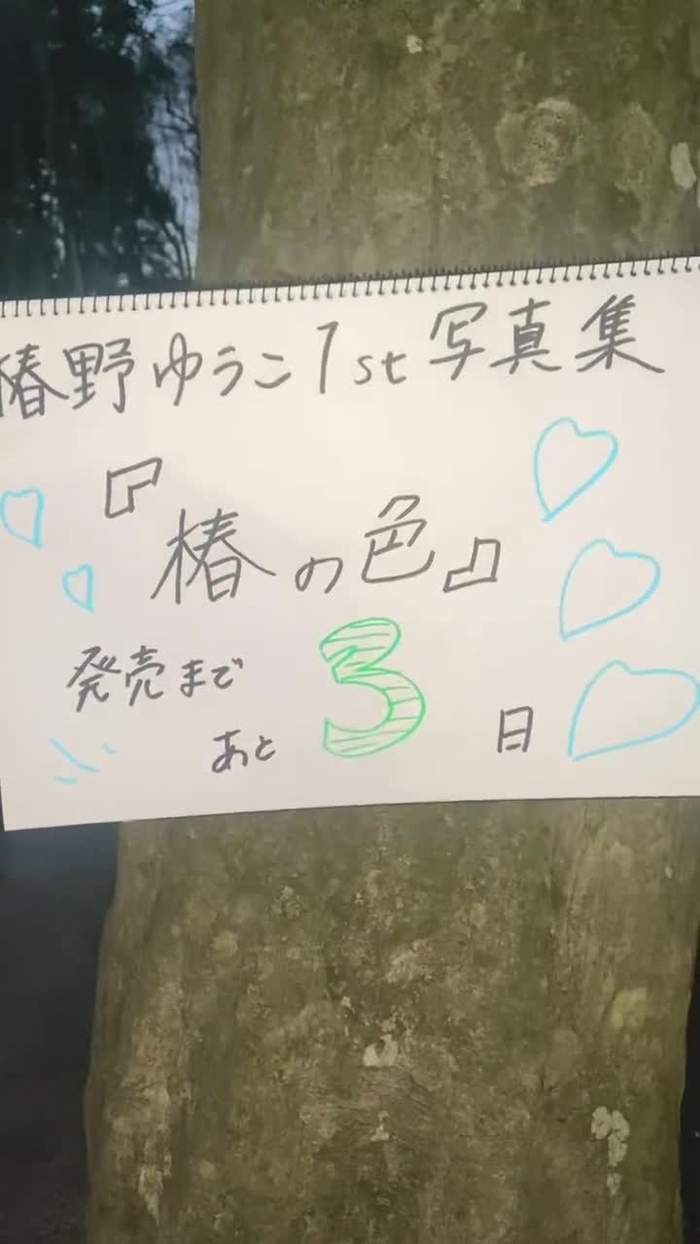 椿野ゆうこ1st写真集
『椿の色』
発売まで
あと3日